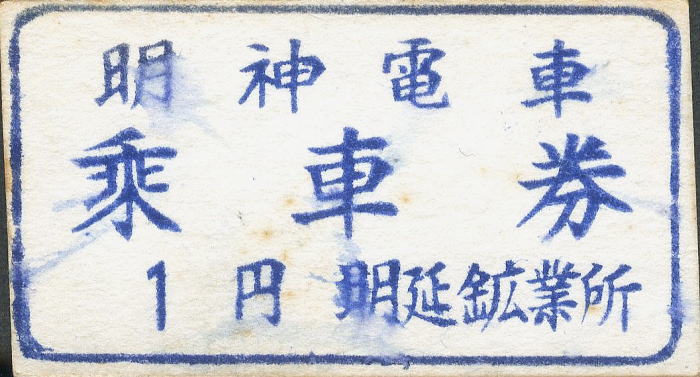 明神電車
乗車券
1円 明延鉱業所